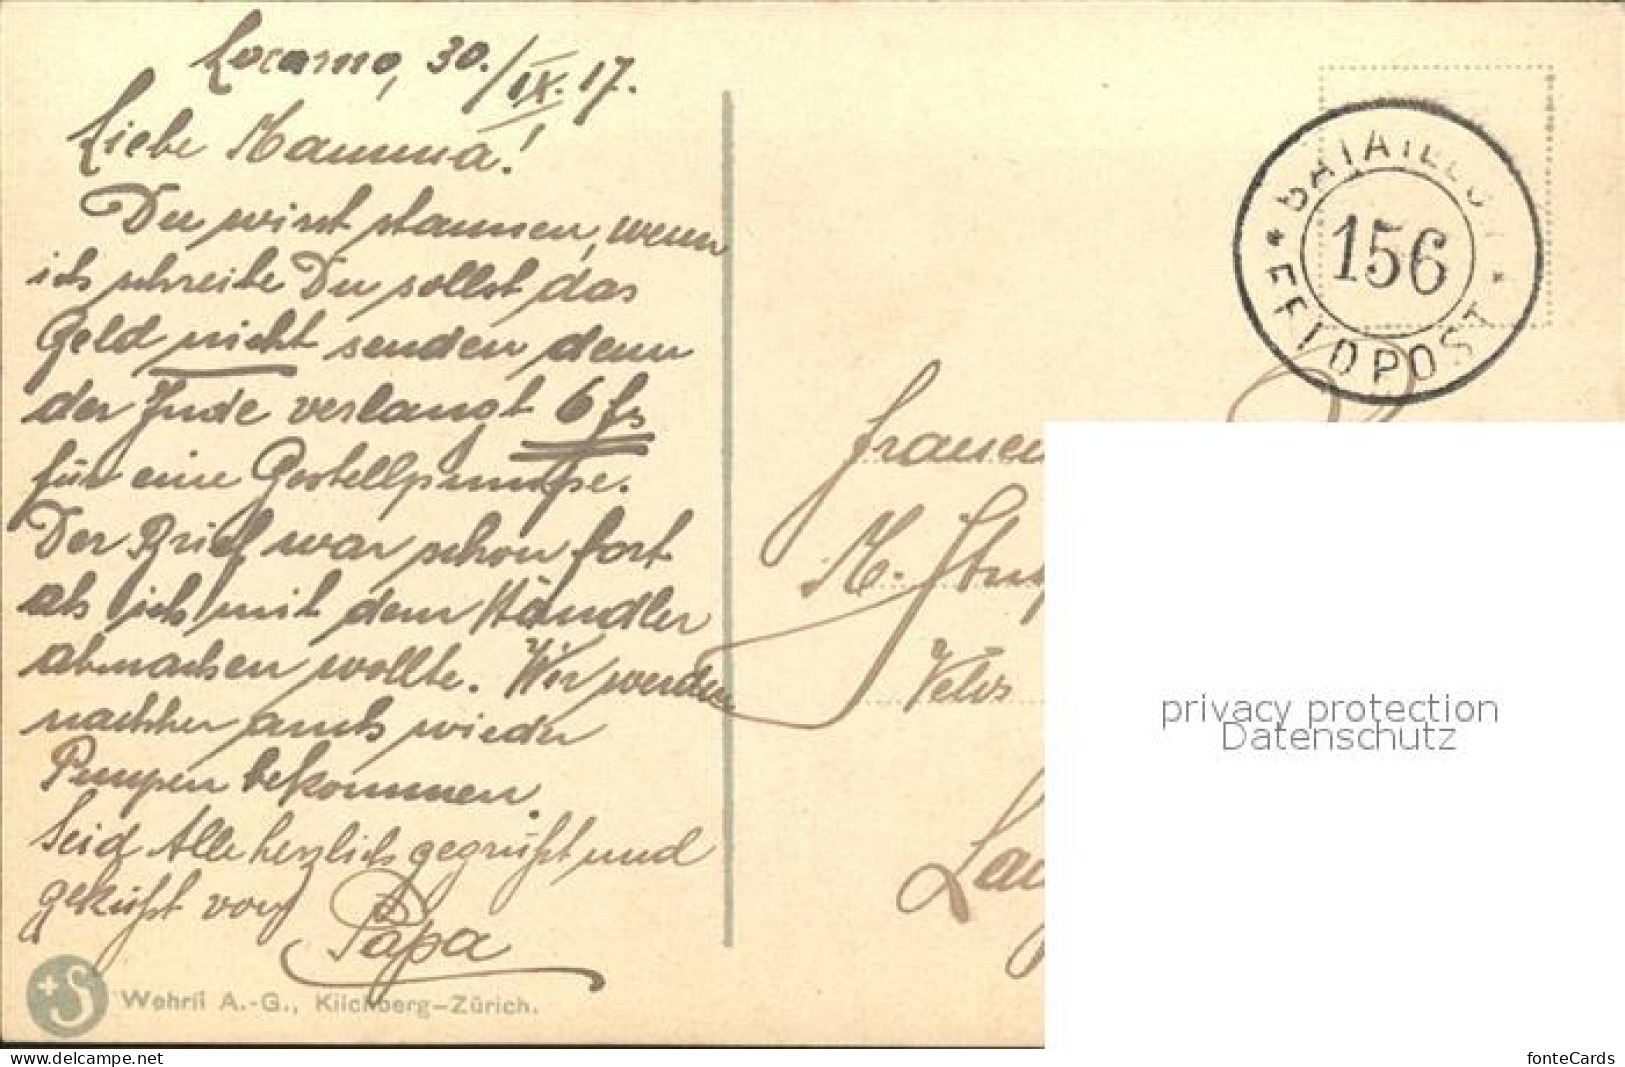 Locarno, 30./IX. 17.
Liebe Mamma!
Du wirst staunen, wenn
ich schreibe Du sollst das
Geld nicht senden denn
der Jude verlangt 6 fs
für eine Gestellpumpe.
Der Brief war schon fort
als ich mit dem Händler
abmachen wollte. Wir werden
nachher auch wieder
Pumpen bekommen.
Seid Alle herzlich gegrüßt und
geküßt von
Papa
Wehrli A.-G., Kilchberg-Zürich.
BATAILLON
156
FELDPOST
M.
Velos
privacy protection
Datenschutz
https://www.delcampe.net
fonteCards